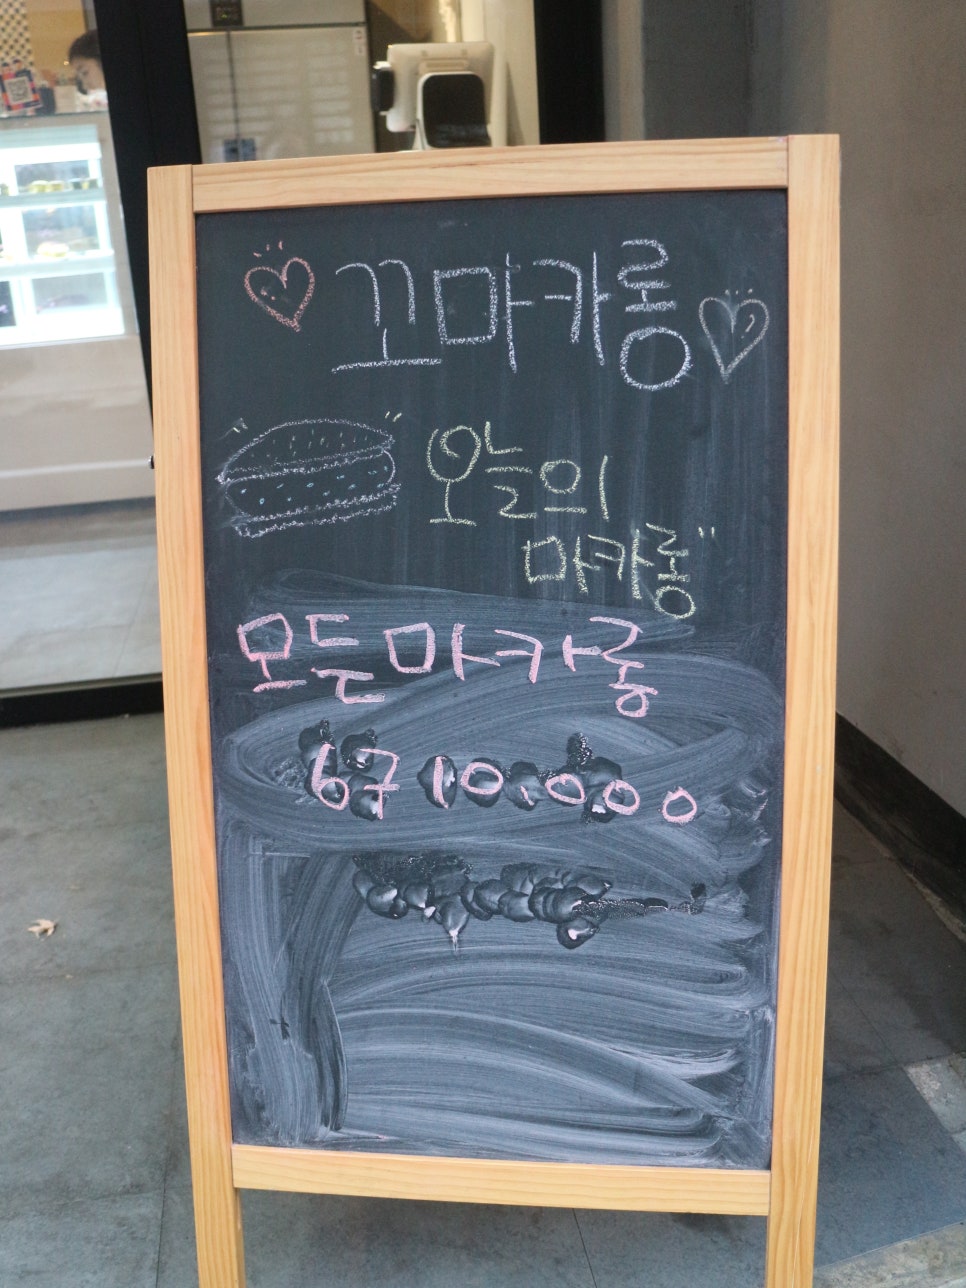 꼬마카롱
오늘의
마카롱"
모든마카롱
6구 10,000